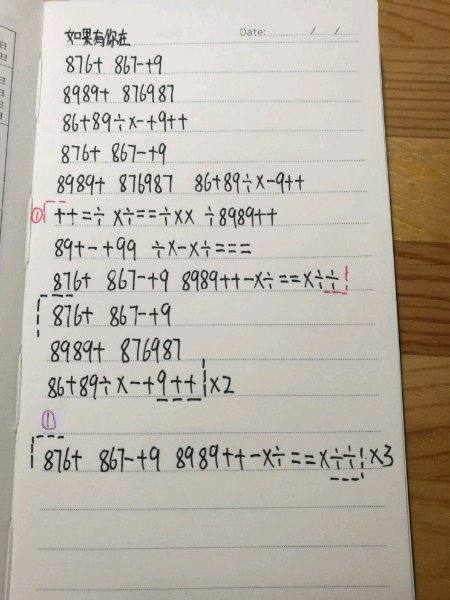 如果有你在 Date: / /
876+ 867-+9
8989+ 876987
86+89÷×-+9++
876+ 867-+9
8989+ 876987 86+89÷×-9++
① ++=÷ ×÷==÷×× ÷8989++
89+-+99 ÷×-×÷===
876+ 867-+9 8989++-×÷==×÷÷
876+ 867-+9
8989+ 876987
86+89÷×-+9++ ×2
①
876+ 867-+9 8989++-×÷==×÷÷ ×3